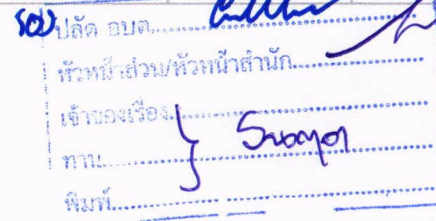 รองปลัด อบต.
หัวหน้าส่วน/หัวหน้าสำนัก
เจ้าของเรื่อง
ทาน
พิมพ์